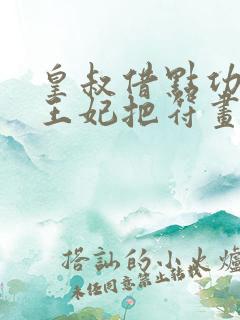 皇叔借點功
王妃把符畫
搭訕的小火爐
未经同意禁止转载